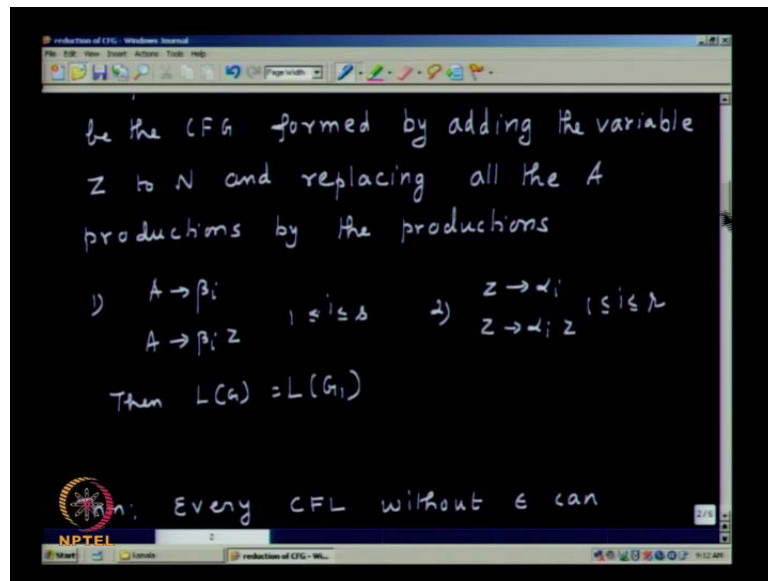 reduction of CFG - Windows Journal
File Edit View Insert Actions Tools Help
Page Width
be the CFG formed by adding the variable
Z to N and replacing all the A
productions by the productions
1) A → βi
A → βi Z 1 ≤ i ≤ s
2) Z → αi
Z → αi Z 1 ≤ i ≤ r
Then L(G) = L(G1)
Every CFL without ε can
2/6
NPTEL
2
Start kamala reduction of CFG - Wi... 9:12 AM